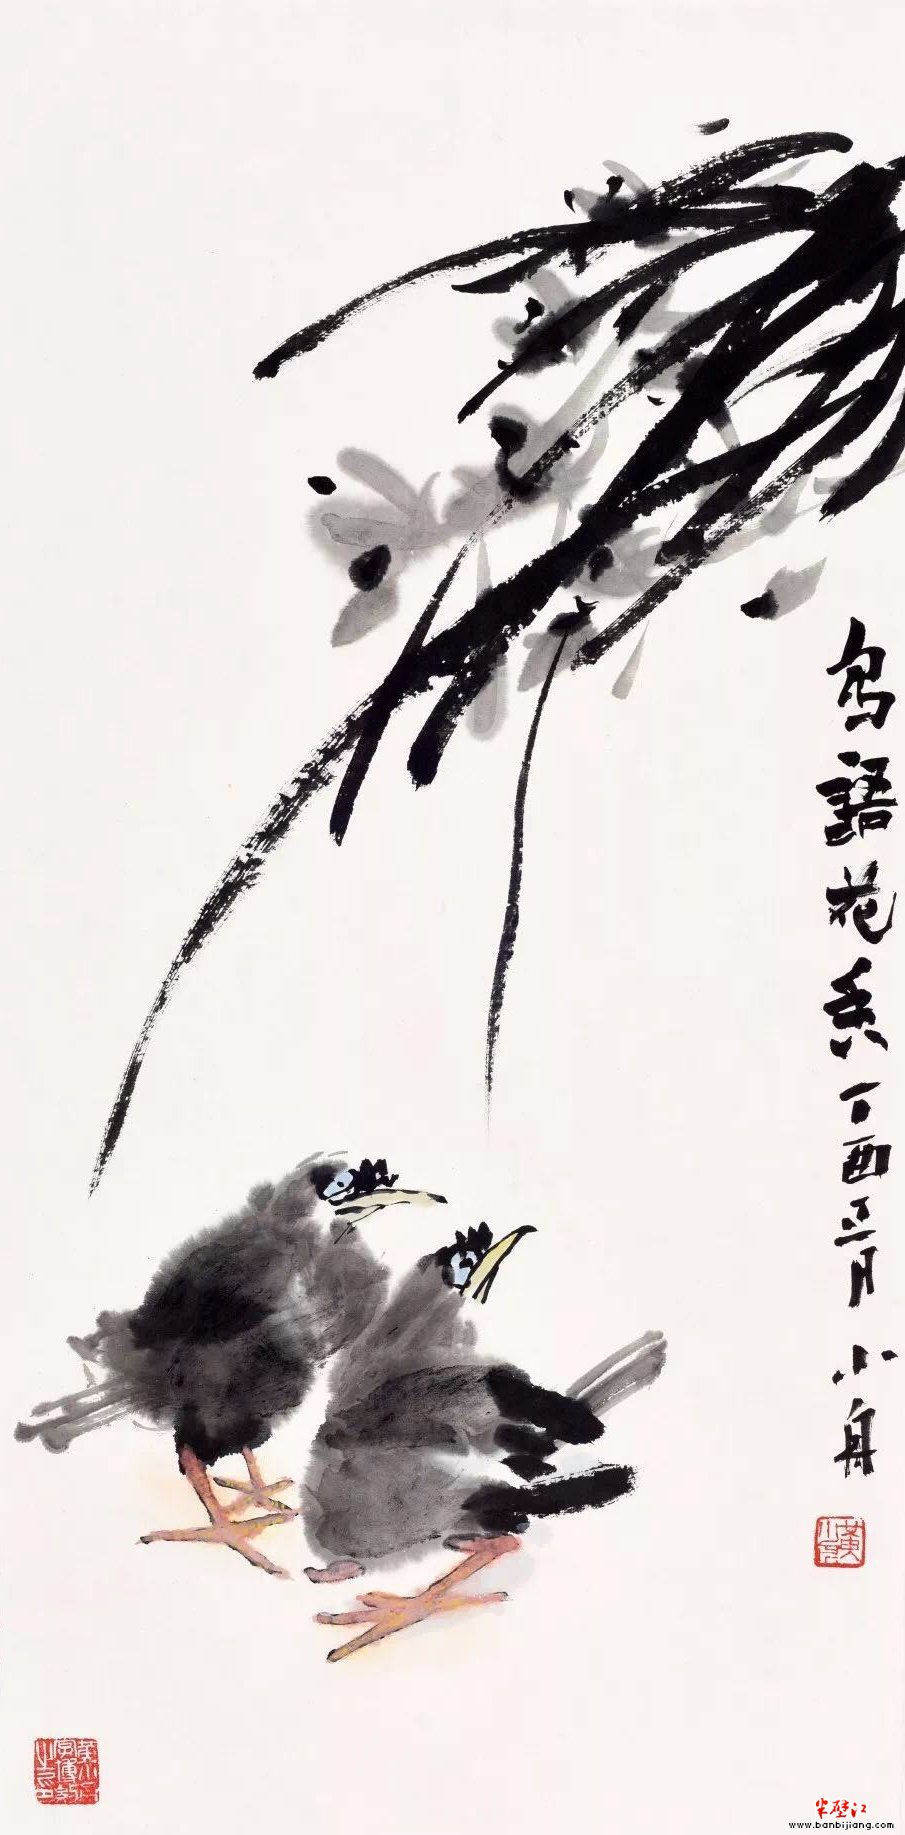 鸟語花香丁酉正月小舟
半壁江
www.banbijiang.com